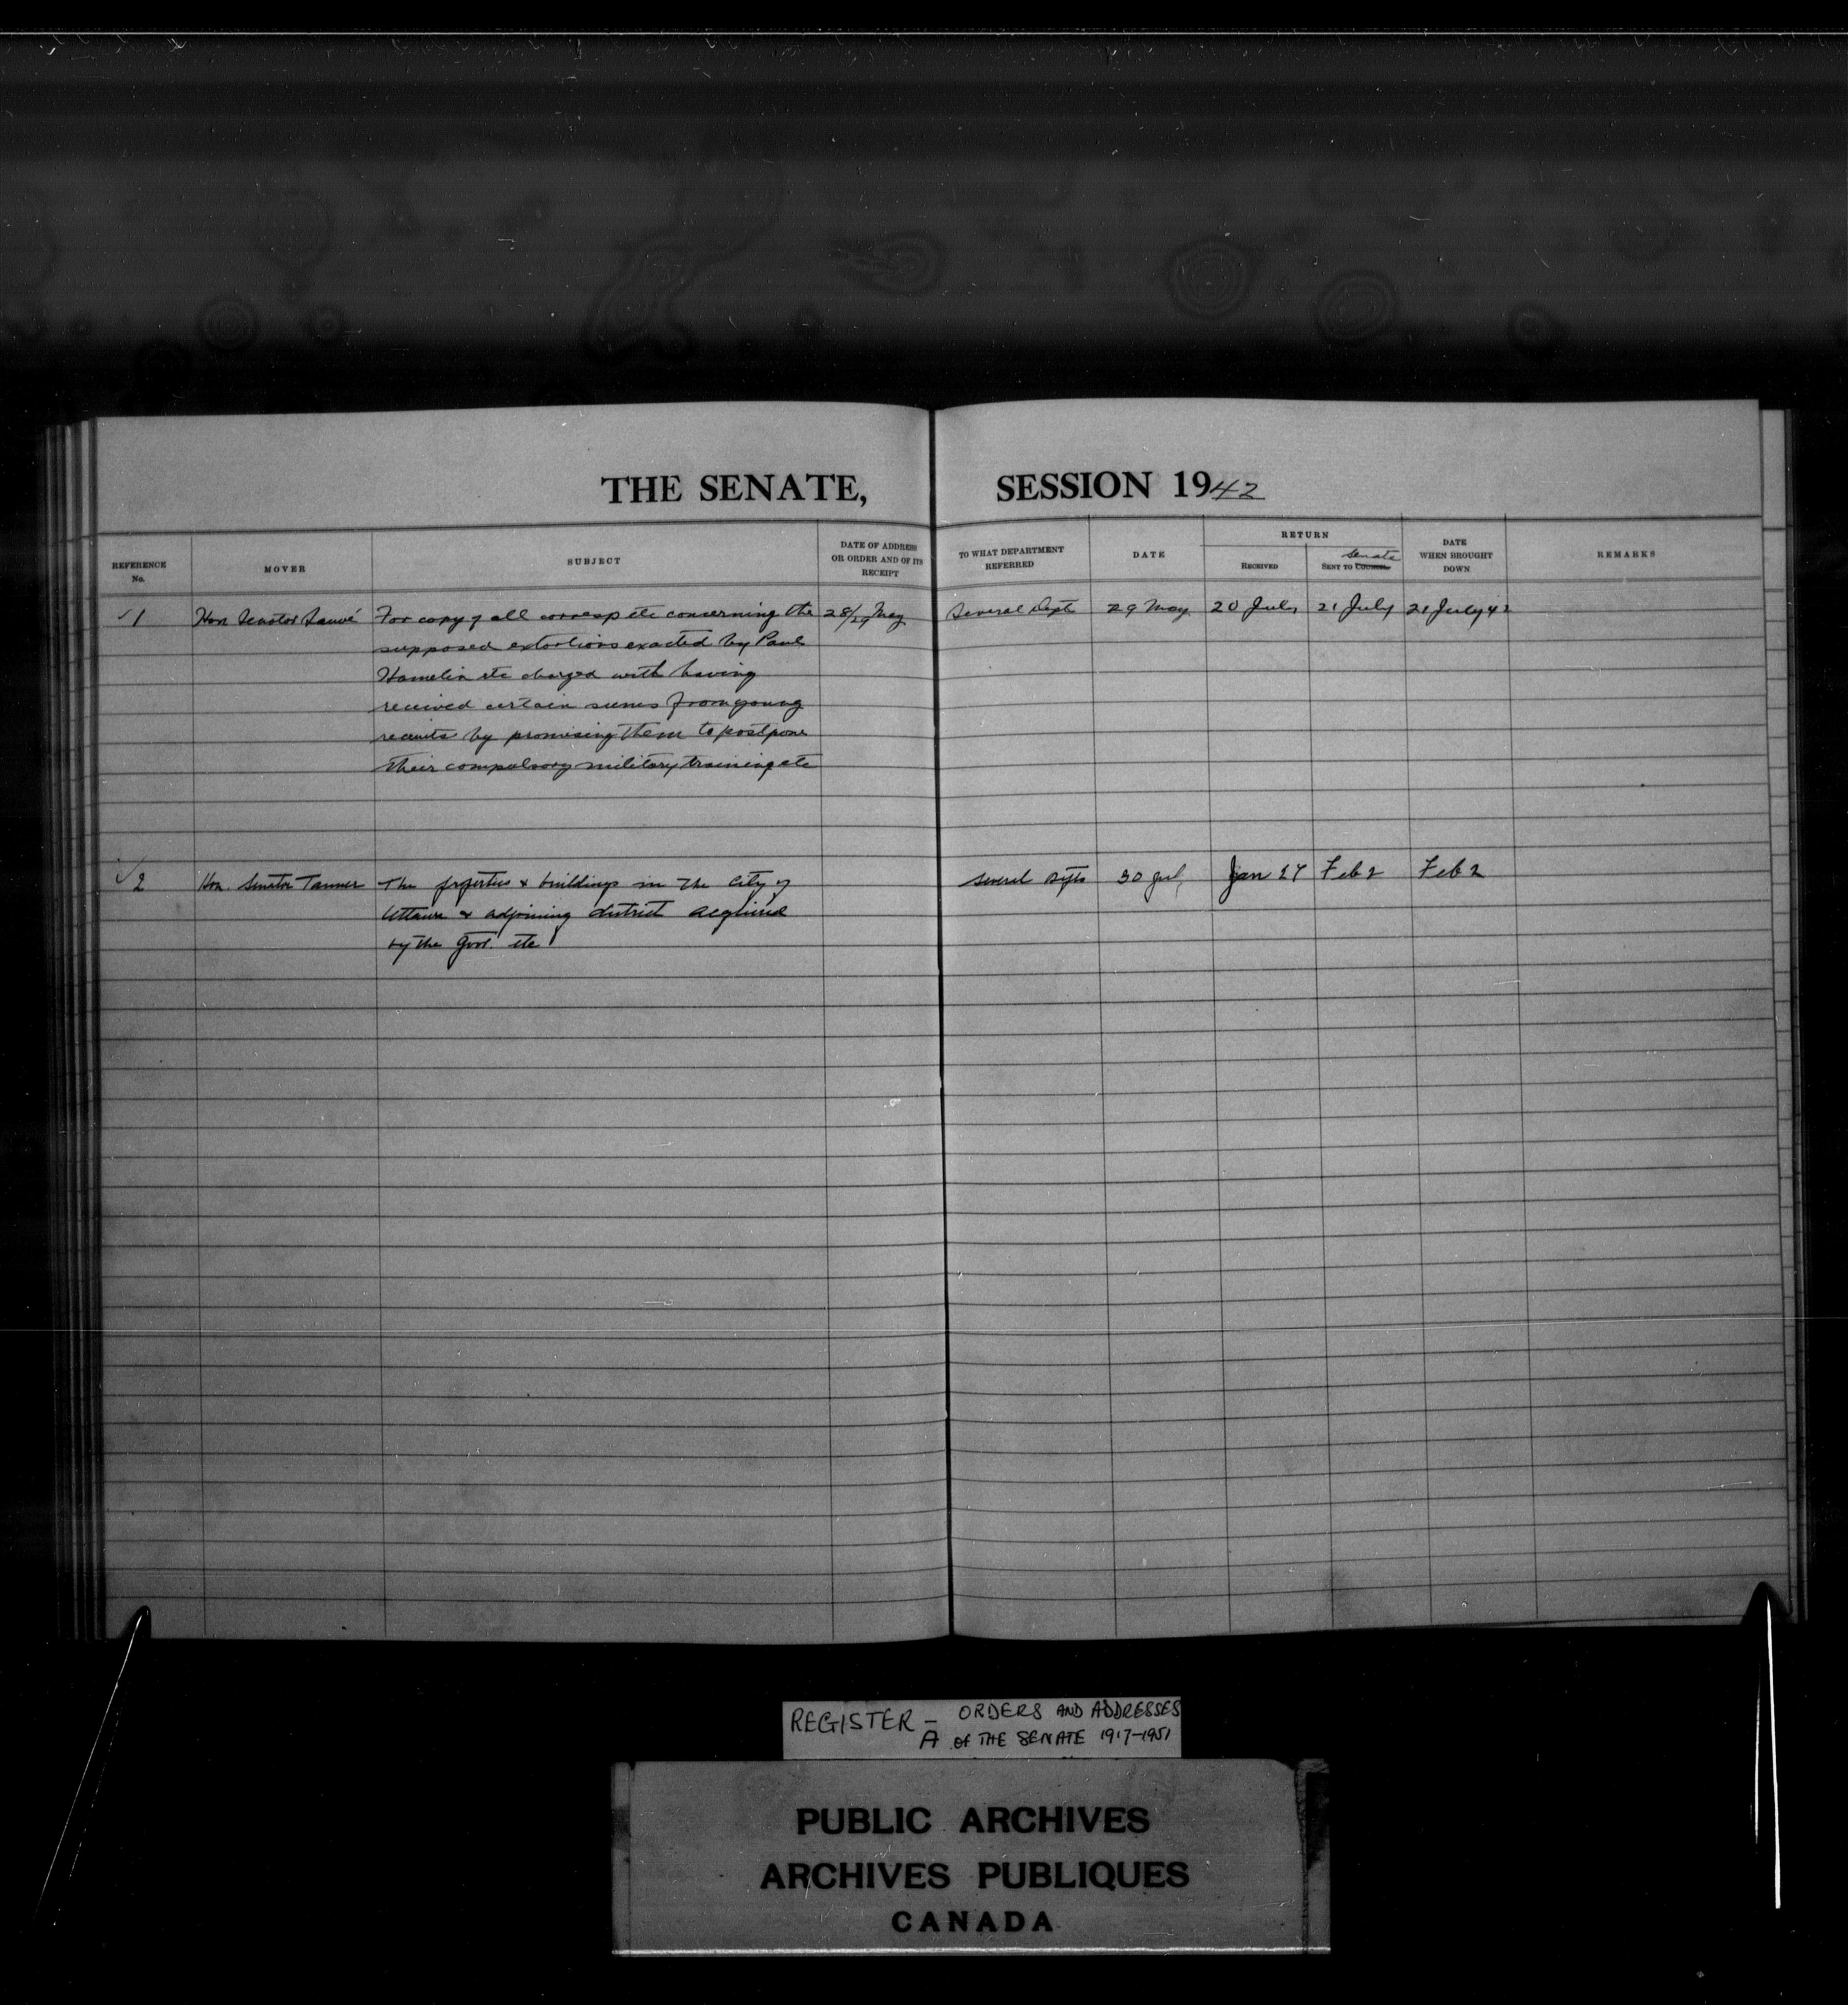 THE SENATE, SESSION 1942
REFERENCE No.
MOVER
SUBJECT
DATE OF ADDRESS OR ORDER AND OF ITS RECEIPT
TO WHAT DEPARTMENT REFERRED
DATE
RETURN
RECEIVED
Senate
SENT TO COUNCIL
DATE WHEN BROUGHT DOWN
REMARKS
√1 Hon Senator Sauvé For copy of all corresp etc concerning the 28/29 May Several Depts 29 May 20 July 21 July 21 July 42
supposed extortions exacted by Paul
Hamelin etc charged with having
received certain sums from young
recruits by promising them to postpone
their compulsory military training etc
√2 Hon. Senator Tanner The properties & buildings in the City of Several Depts 30 Jan 27 Feb 2 Feb 2
Ottawa & adjoining district acquired
by the Govt. etc
REGISTER — ORDERS AND ADDRESSES
A OF THE SENATE 1917-1951
PUBLIC ARCHIVES
ARCHIVES PUBLIQUES
CANADA